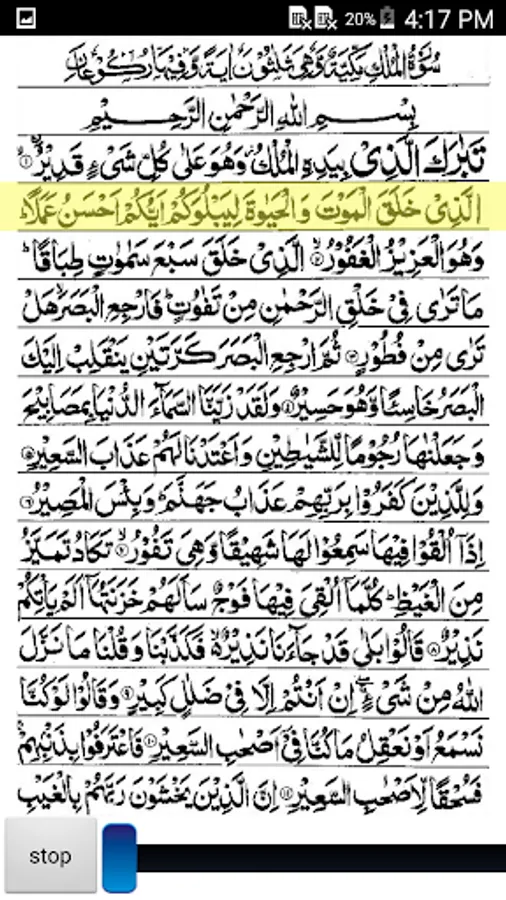 20% 4:17 PM
سُوْرَةُ الْمُلْكِ مَكِّيَّةٌ وَّهِيَ ثَلٰثُوْنَ اٰيَةً وَّفِيْهَا رُكُوْعَانِ
بِسْمِ اللهِ الرَّحْمٰنِ الرَّحِيْمِ
تَبٰرَكَ الَّذِيْ بِيَدِهِ الْمُلْكُ وَهُوَ عَلٰى كُلِّ شَيْءٍ قَدِيْرُۨ ۝۱
الَّذِيْ خَلَقَ الْمَوْتَ وَالْحَيٰوةَ لِيَبْلُوَكُمْ اَيُّكُمْ اَحْسَنُ عَمَلًا ؕ
وَهُوَ الْعَزِيْزُ الْغَفُوْرُ ۝۲ الَّذِيْ خَلَقَ سَبْعَ سَمٰوٰتٍ طِبَاقًا ؕ
مَا تَرٰى فِيْ خَلْقِ الرَّحْمٰنِ مِنْ تَفٰوُتٍ ؕ فَارْجِعِ الْبَصَرَ ۙ هَلْ
تَرٰى مِنْ فُطُوْرٍ ۝۳ ثُمَّ ارْجِعِ الْبَصَرَ كَرَّتَيْنِ يَنْقَلِبْ اِلَيْكَ
الْبَصَرُ خَاسِئًا وَّهُوَ حَسِيْرٌ ۝۴ وَلَقَدْ زَيَّنَّا السَّمَآءَ الدُّنْيَا بِمَصَابِيْحَ
وَجَعَلْنٰهَا رُجُوْمًا لِّلشَّيٰطِيْنِ وَاَعْتَدْنَا لَهُمْ عَذَابَ السَّعِيْرِ ۝۵
وَلِلَّذِيْنَ كَفَرُوْا بِرَبِّهِمْ عَذَابُ جَهَنَّمَ ؕ وَبِئْسَ الْمَصِيْرُ ۝۶
اِذَآ اُلْقُوْا فِيْهَا سَمِعُوْا لَهَا شَهِيْقًا وَّهِيَ تَفُوْرُ ۝۷ تَكَادُ تَمَيَّزُ
مِنَ الْغَيْظِ ؕ كُلَّمَآ اُلْقِيَ فِيْهَا فَوْجٌ سَاَلَهُمْ خَزَنَتُهَآ اَلَمْ يَاْتِكُمْ
نَذِيْرٌ ۝۸ قَالُوْا بَلٰى قَدْ جَآءَنَا نَذِيْرٌ ۙ فَكَذَّبْنَا وَقُلْنَا مَا نَزَّلَ
اللهُ مِنْ شَيْءٍ ۚ اِنْ اَنْتُمْ اِلَّا فِيْ ضَلٰلٍ كَبِيْرٍ ۝۹ وَقَالُوْا لَوْ كُنَّا
نَسْمَعُ اَوْ نَعْقِلُ مَا كُنَّا فِيْٓ اَصْحٰبِ السَّعِيْرِ ۝۱۰ فَاعْتَرَفُوْا بِذَنْۢبِهِمْ ۚ
فَسُحْقًا لِّاَصْحٰبِ السَّعِيْرِ ۝۱۱ اِنَّ الَّذِيْنَ يَخْشَوْنَ رَبَّهُمْ بِالْغَيْبِ
stop